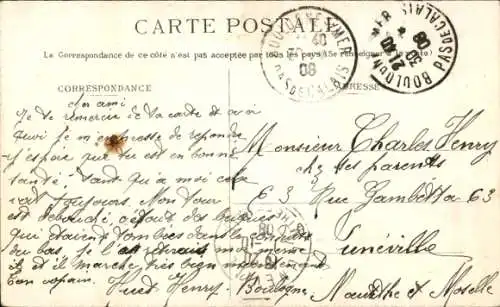 CARTE POSTALE
La Correspondance de ce côté n'est pas acceptée par tous les pays (Se renseigner à la poste)
CORRESPONDANCE
ADRESSE
BOULOGNE S MER
PAS DE CALAIS
08
BOULOGNE S MER
PAS DE CALAIS
08
cher ami
Je te remercie de ta carte et a
quoi je m'empresse de repondre
j'espère que tu est en bonne
santé, tant qu'a moi cela
va toujours. Mon tour
est debouché, c'etait des
qui etaient tombés dans le
du bas je l'ai retiré moi même
et il marche très bien maintenant
ton copain. Huet Henry. Boulogne
Monsieur Charles Henry
chez ses parents
63 Rue Gambetta 63
Lunéville
Meurthe et Moselle